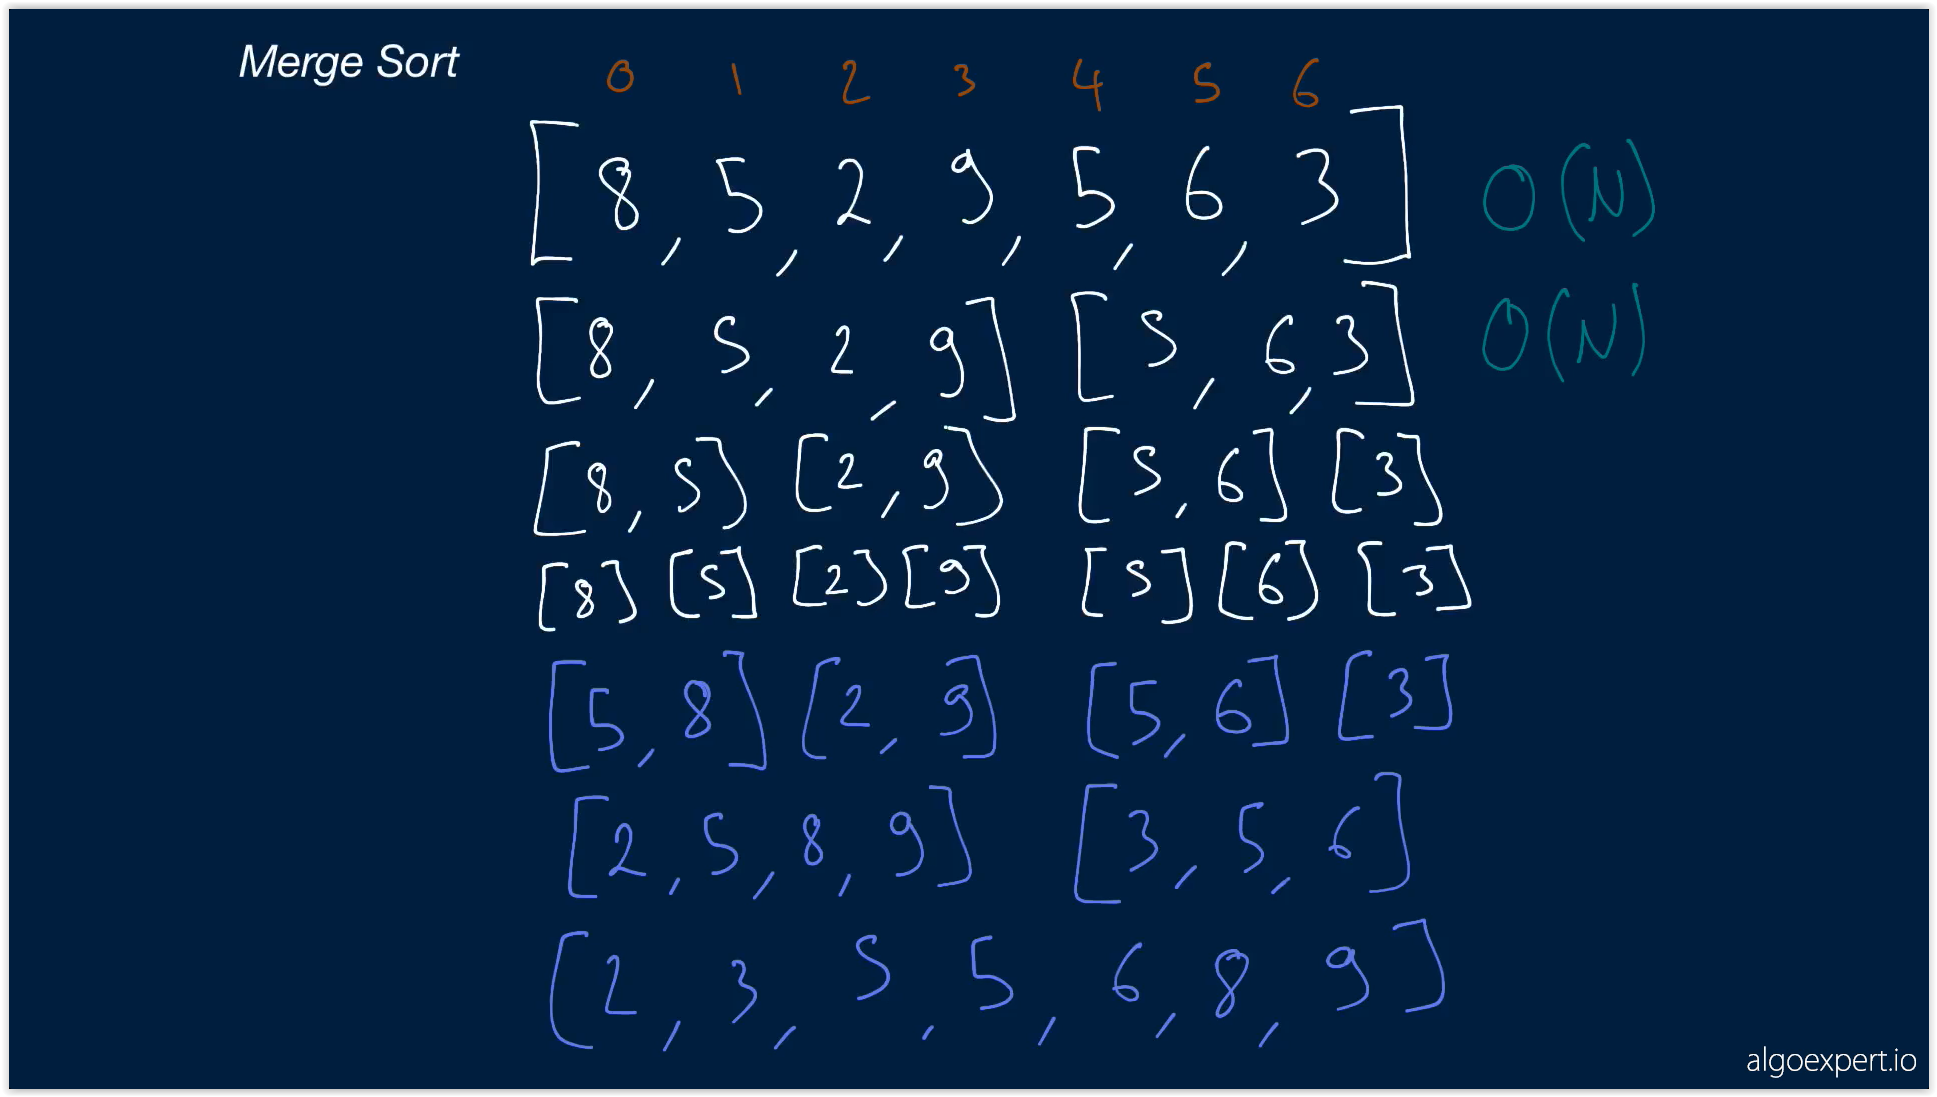 Merge Sort
0 1 2 3 4 5 6
[8, 5, 2, 9, 5, 6, 3] O(N)
[8, 5, 2, 9] [5, 6, 3] O(N)
[8, 5] [2, 9] [5, 6] [3]
[8] [5] [2] [9] [5] [6] [3]
[5, 8] [2, 9] [5, 6] [3]
[2, 5, 8, 9] [3, 5, 6]
[2, 3, 5, 5, 6, 8, 9]
algoexpert.io